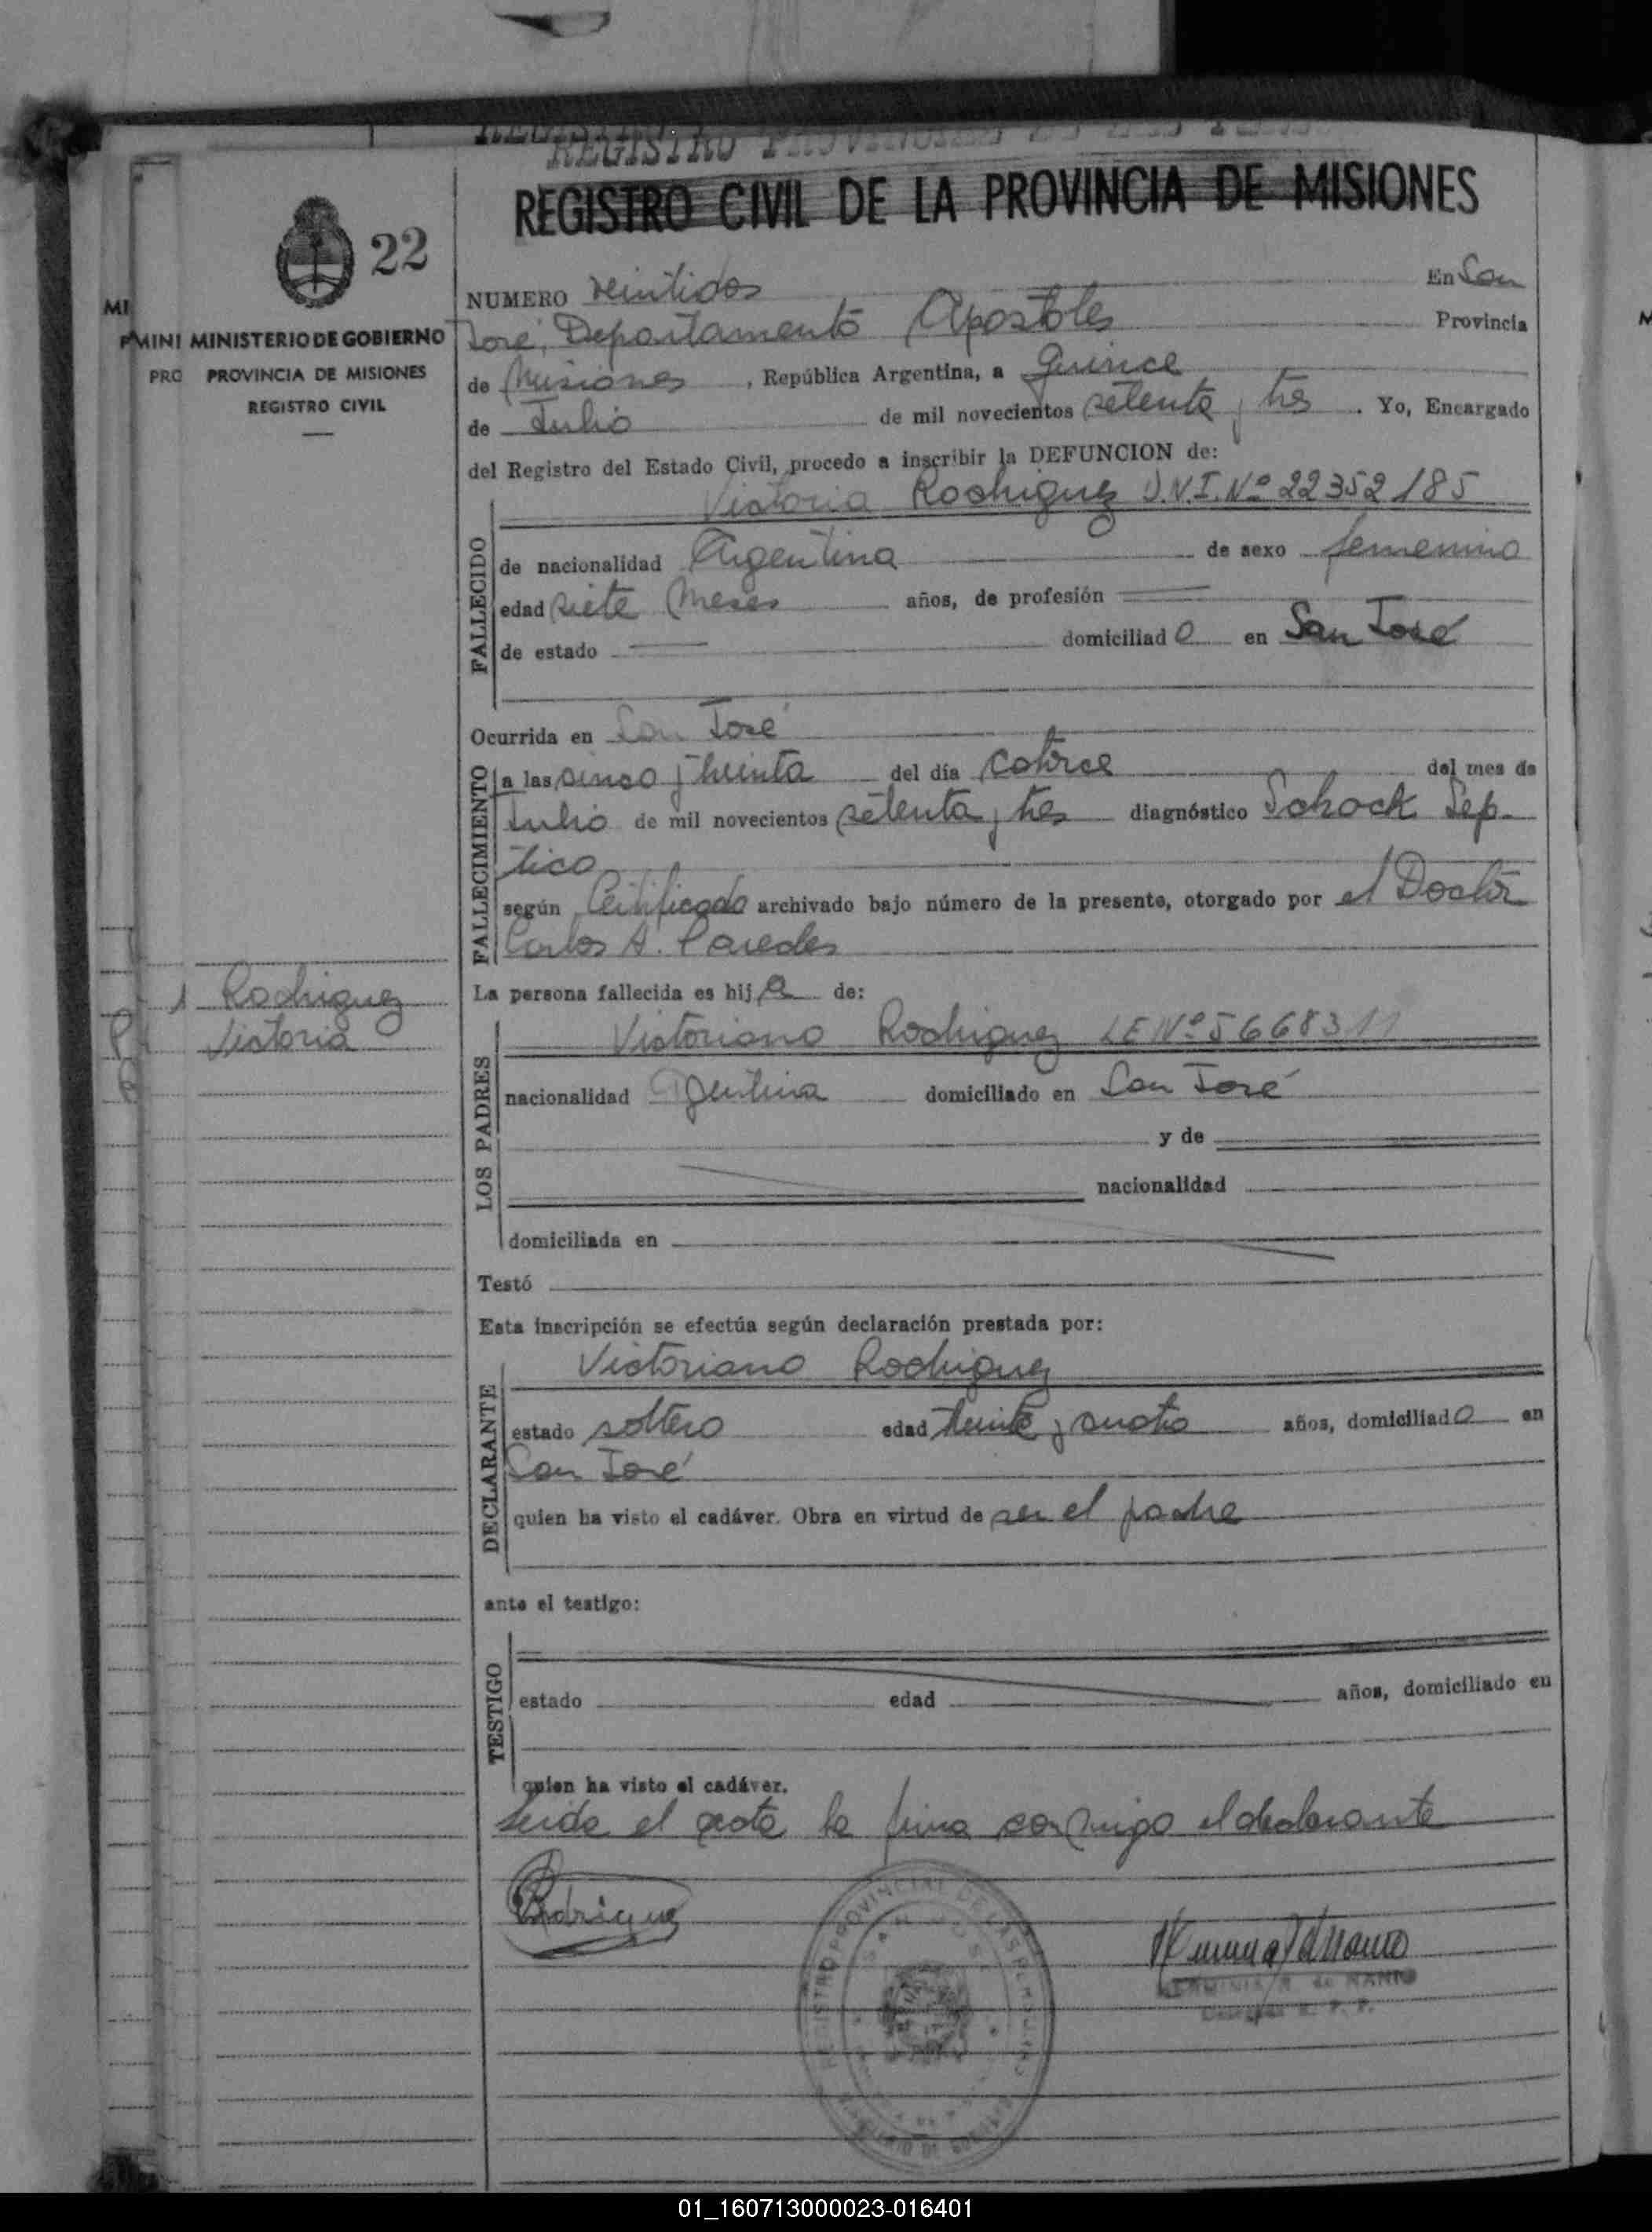 REGISTRO CIVIL DE LA PROVINCIA DE MISIONES
22
MINISTERIO DE GOBIERNO
PROVINCIA DE MISIONES
REGISTRO CIVIL
NUMERO veintidos En San
José, Departamento Apostoles Provincia
de Misiones, República Argentina, a quince
de Julio de mil novecientos setenta y tres. Yo, Encargado
del Registro del Estado Civil, procedo a inscribir la DEFUNCION de:
Victoria Rodriguez D.N.I. Nº 22352185
FALLECIDO
de nacionalidad Argentina de sexo femenino
edad siete meses años, de profesión
de estado domiciliado en San José
Ocurrida en San José
FALLECIMIENTO
a las cinco y treinta del día catorce del mes de
Julio de mil novecientos setenta y tres diagnóstico Schock Sep-
tico
según Certificado archivado bajo número de la presente, otorgado por el Doctor
Carlos A. Paredes
1 Rodriguez
Victoria
La persona fallecida es hija de:
LOS PADRES
Victoriano Rodriguez LE Nº 5668311
nacionalidad Argentina domiciliado en San José
y de
nacionalidad
domiciliada en
Testó
Esta inscripción se efectúa según declaración prestada por:
DECLARANTE
Victoriano Rodriguez
estado soltero edad treinta y cuatro años, domiciliado en
San José
quien ha visto el cadáver. Obra en virtud de ser el padre
ante el testigo:
TESTIGO
estado edad años, domiciliado en
quien ha visto el cadáver.
Leida el acta la firma conmigo el declarante
Rodriguez
REGISTRO PROVINCIAL DE LAS PERSONAS
SAN JOSE
de NANNO
01_160713000023-016401